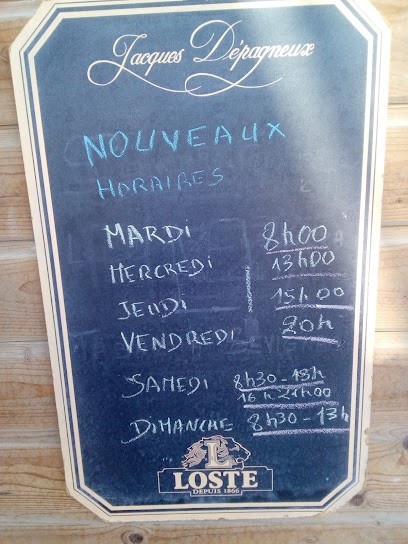 Jacques Dépagneux
NOUVEAUX
HORAIRES
MARDI 8h00
MERCREDI 13h00
JEUDI 15h00
VENDREDI 20h
SAMEDI 8h30-13h
16h21h00
DIMANCHE 8h30-13h
L
LOSTE
DEPUIS 1866